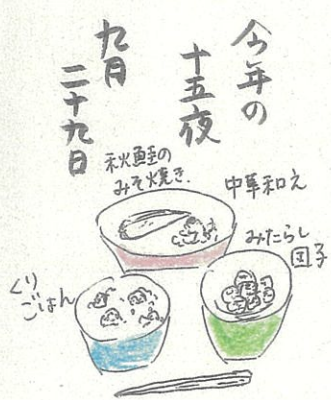 今年の
十五夜
九月
二十九日
秋鮭の
みそ焼き
中華和え
みたらし
団子
くり
ごはん